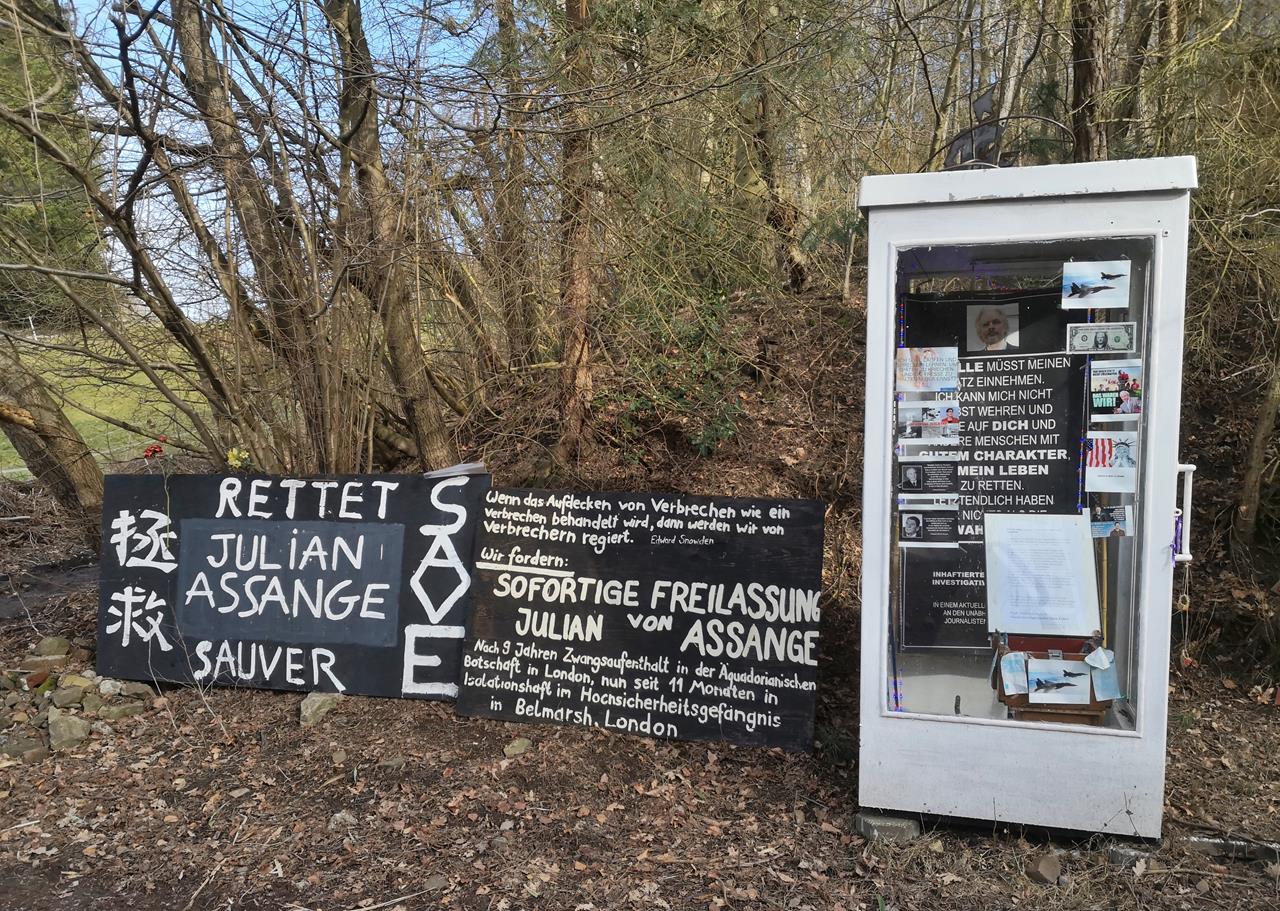 RETTET
拯
救
JULIAN
ASSANGE
SAUVER
SAVE
Wenn das Aufdecken von Verbrechen wie ein
Verbrechen behandelt wird, dann werden wir von
Verbrechern regiert. Edward Snowden
Wir fordern:
SOFORTIGE FREILASSUNG
JULIAN VON ASSANGE
Nach 9 Jahren Zwangsaufenthalt in der Äquadorianischen
Botschaft in London, nun seit 11 Monaten in
Isolationshaft im Hochsicherheitsgefängnis
in Belmarsh, London
LLE MÜSST MEINEN
ATZ EINNEHMEN.
ICH KANN MICH NICHT
BST WEHREN UND
E AUF DICH UND
ERE MENSCHEN MIT
GUTEM CHARAKTER,
MEIN LEBEN
ZU RETTEN.
LETZTENDLICH HABEN
WAH
DAS WAREN
WIR!
INHAFTIERTE
INVESTIGATIV
IN EINEM AKTUELLE
AN DEN UNABH
JOURNALISTEN